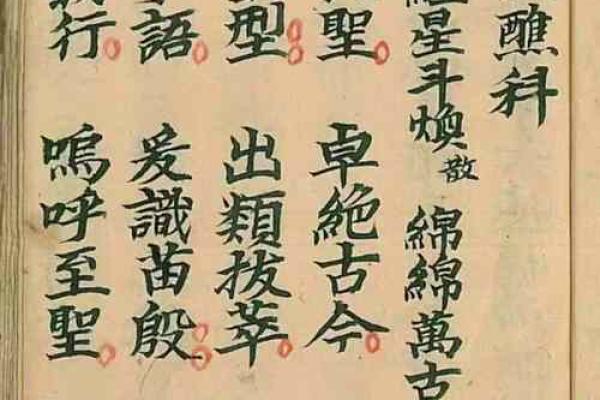 醮科
星斗煥散 綿綿萬古
聖 卓絶古今
型 出類拔萃
語 爰識苗殷
行 嗚呼至聖